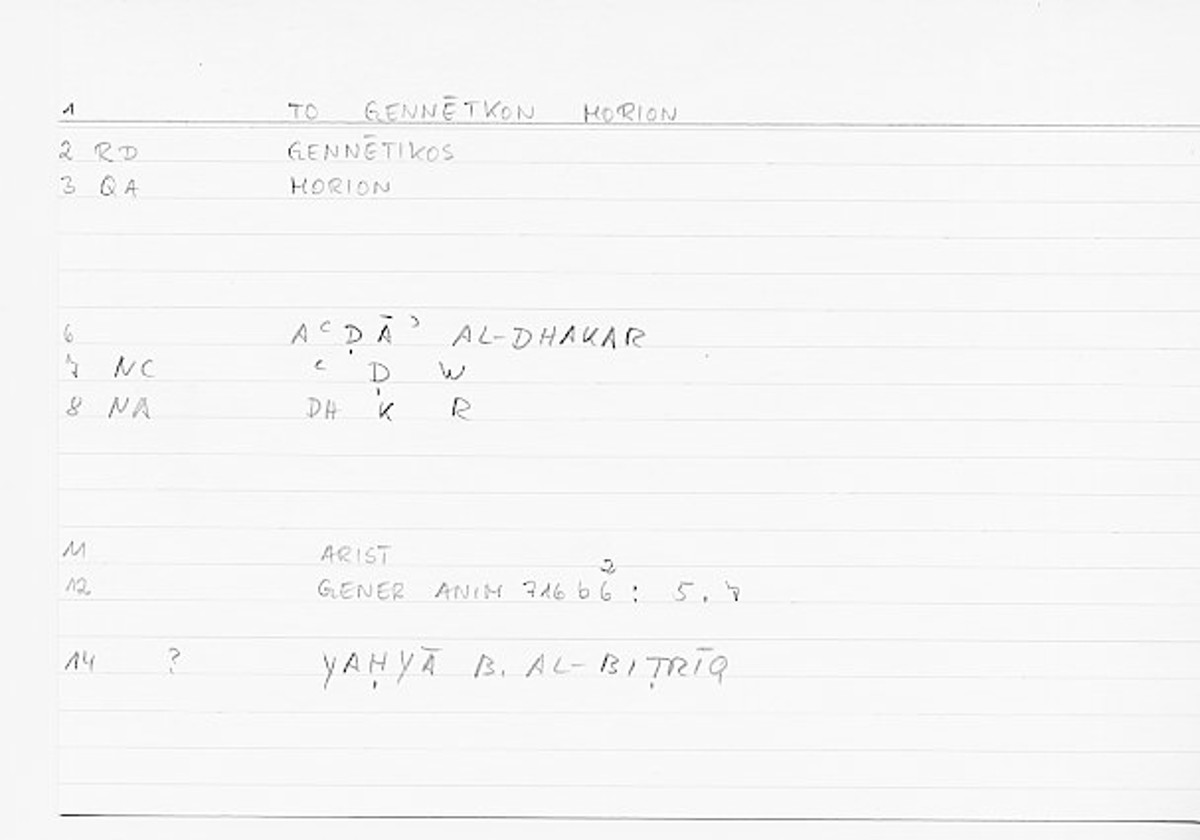 1 TO GENNĒTKON MORION
2 RD GENNĒTIKOS
3 QA MORION
6 AʿḌĀʾ AL-DHAKAR
7 NC ʿ Ḍ W
8 NA DH K R
11 ARIST
12 GENER ANIM 716 b 6 2 : 5.7
14 ? YAḤYĀ B. AL-BIṬRĪQ